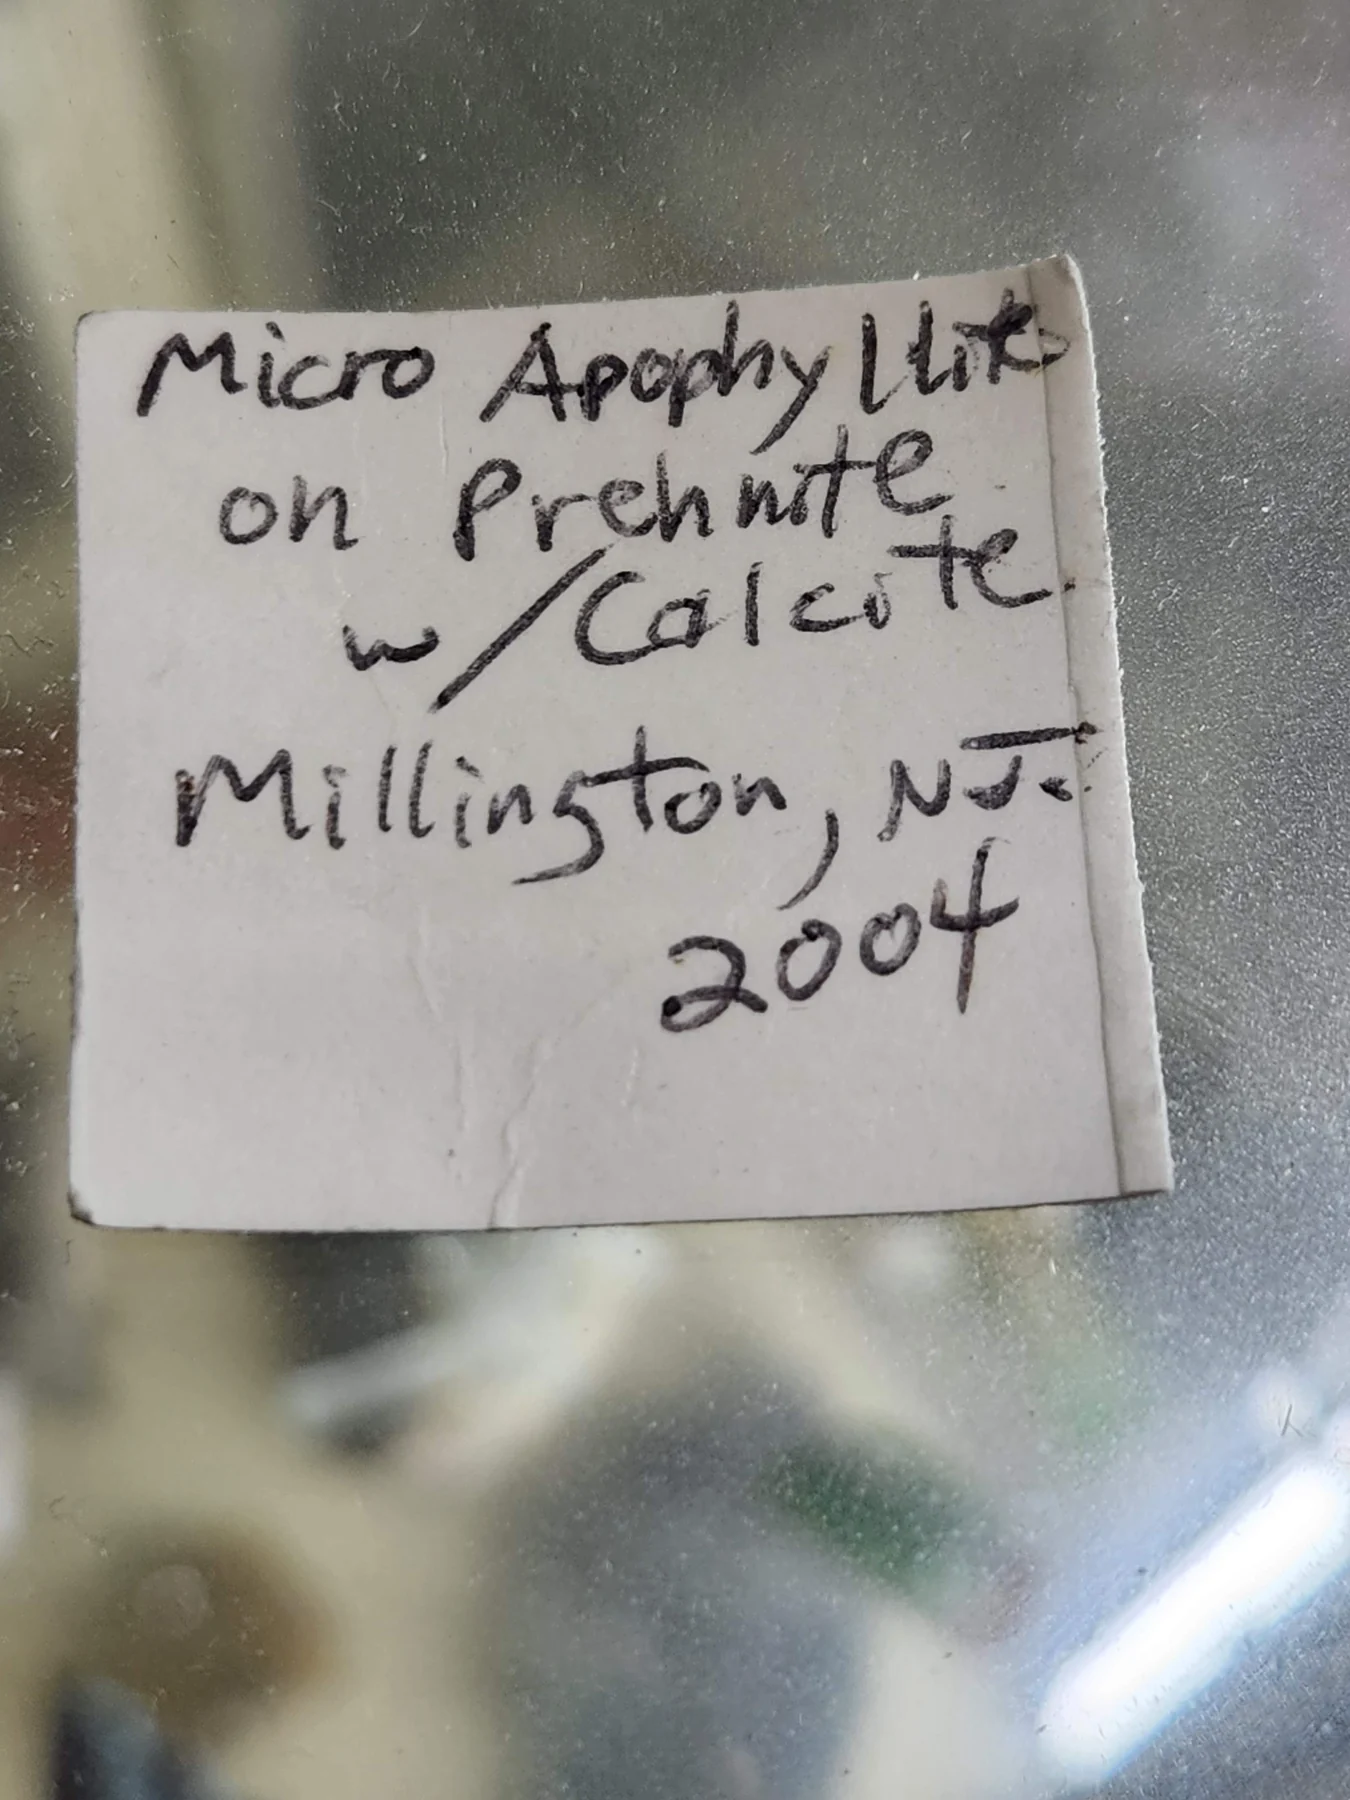 Micro Apophyllite
on Prehnite
w/Calcite
Millington, NJ.
2004